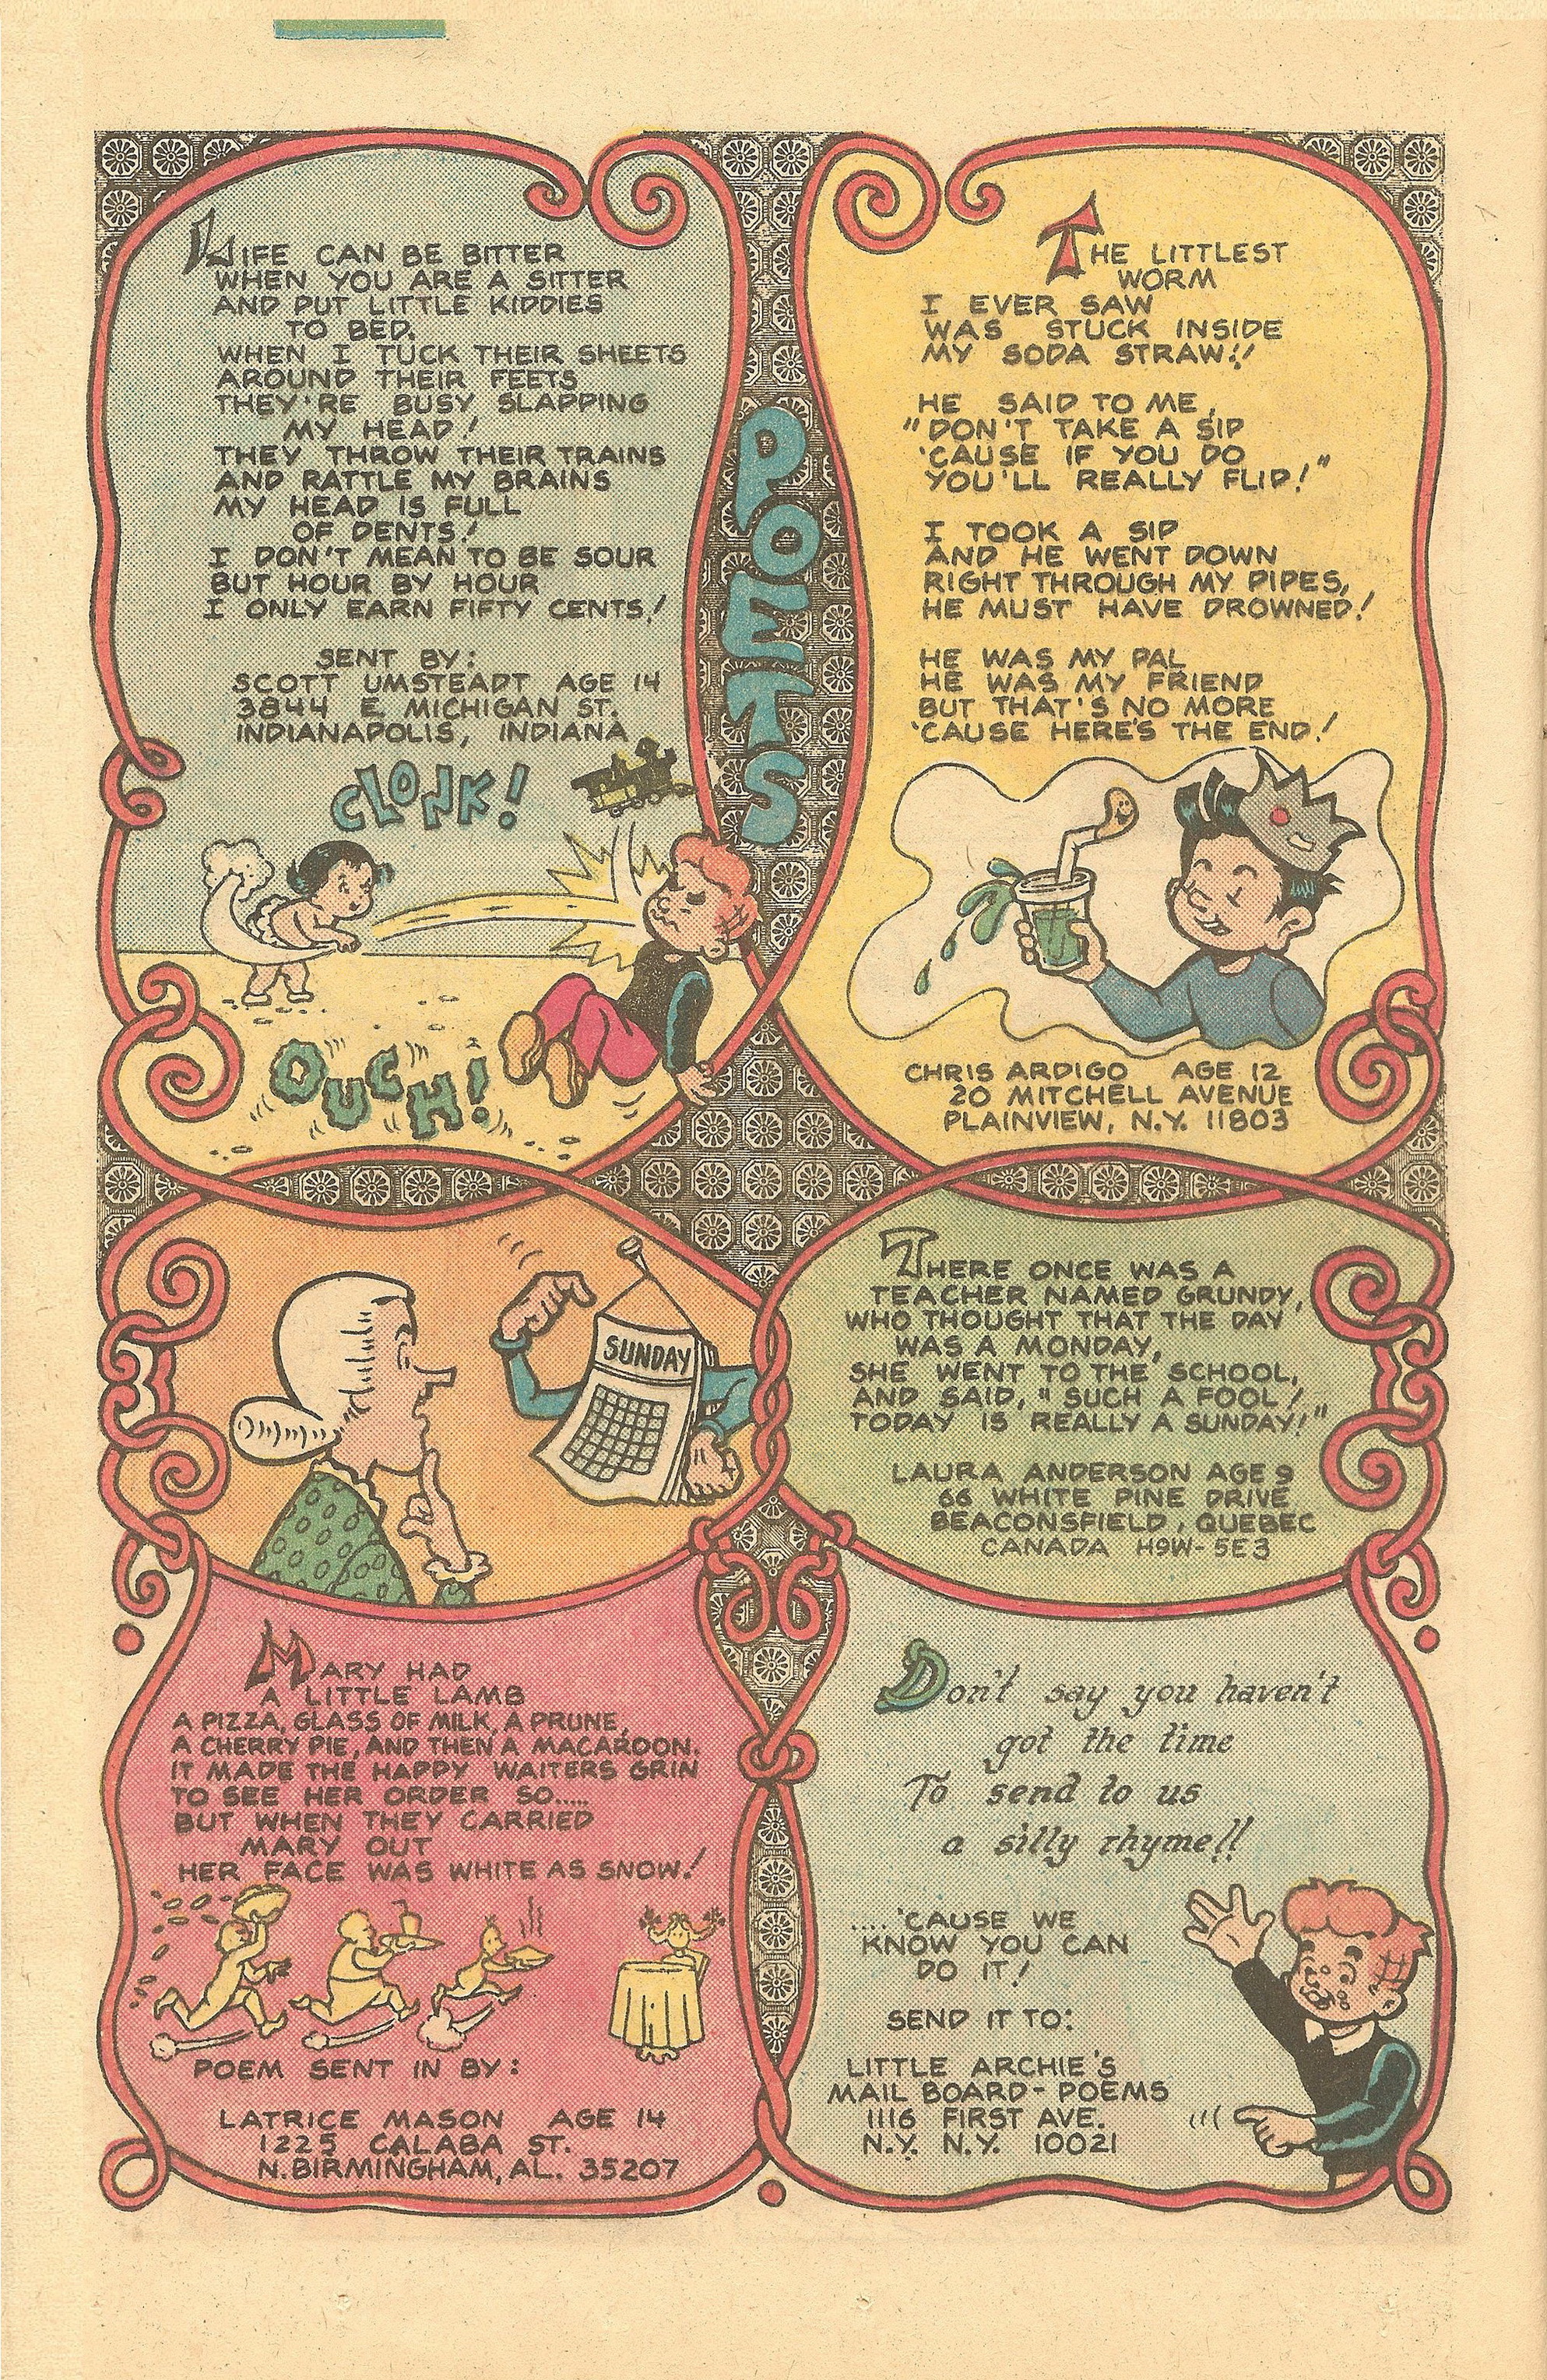 LIFE CAN BE BITTER
WHEN YOU ARE A SITTER
AND PUT LITTLE KIDDIES
TO BED.
WHEN I TUCK THEIR SHEETS
AROUND THEIR FEETS
THEY'RE BUSY SLAPPING
MY HEAD!
THEY THROW THEIR TRAINS
AND RATTLE MY BRAINS
MY HEAD IS FULL
OF DENTS!
I DON'T MEAN TO BE SOUR
BUT HOUR BY HOUR
I ONLY EARN FIFTY CENTS!
SENT BY:
SCOTT UMSTEADT AGE 14
3844 E. MICHIGAN ST.
INDIANAPOLIS, INDIANA
CLONK!
OUCH!
POETS
THE LITTLEST
WORM
I EVER SAW
WAS STUCK INSIDE
MY SODA STRAW!!
HE SAID TO ME,
"DON'T TAKE A SIP
'CAUSE IF YOU DO
YOU'LL REALLY FLIP!"
I TOOK A SIP
AND HE WENT DOWN
RIGHT THROUGH MY PIPES,
HE MUST HAVE DROWNED!
HE WAS MY PAL
HE WAS MY FRIEND
BUT THAT'S NO MORE
'CAUSE HERE'S THE END!
CHRIS ARDIGO AGE 12
20 MITCHELL AVENUE
PLAINVIEW, N.Y. 11803
SUNDAY
THERE ONCE WAS A
TEACHER NAMED GRUNDY,
WHO THOUGHT THAT THE DAY
WAS A MONDAY,
SHE WENT TO THE SCHOOL,
AND SAID, "SUCH A FOOL!
TODAY IS REALLY A SUNDAY!"
LAURA ANDERSON AGE 9
66 WHITE PINE DRIVE
BEACONSFIELD, QUEBEC
CANADA H9W-5E3
MARY HAD
A LITTLE LAMB
A PIZZA, GLASS OF MILK, A PRUNE,
A CHERRY PIE, AND THEN A MACAROON.
IT MADE THE HAPPY WAITERS GRIN
TO SEE HER ORDER SO.....
BUT WHEN THEY CARRIED
MARY OUT
HER FACE WAS WHITE AS SNOW!
POEM SENT IN BY:
LATRICE MASON AGE 14
1225 CALABA ST.
N. BIRMINGHAM, AL. 35207
Don't say you haven't
got the time
To send to us
a silly rhyme!!
....'CAUSE WE
KNOW YOU CAN
DO IT!
SEND IT TO:
LITTLE ARCHIE'S
MAIL BOARD - POEMS
1116 FIRST AVE.
N.Y. N.Y. 10021